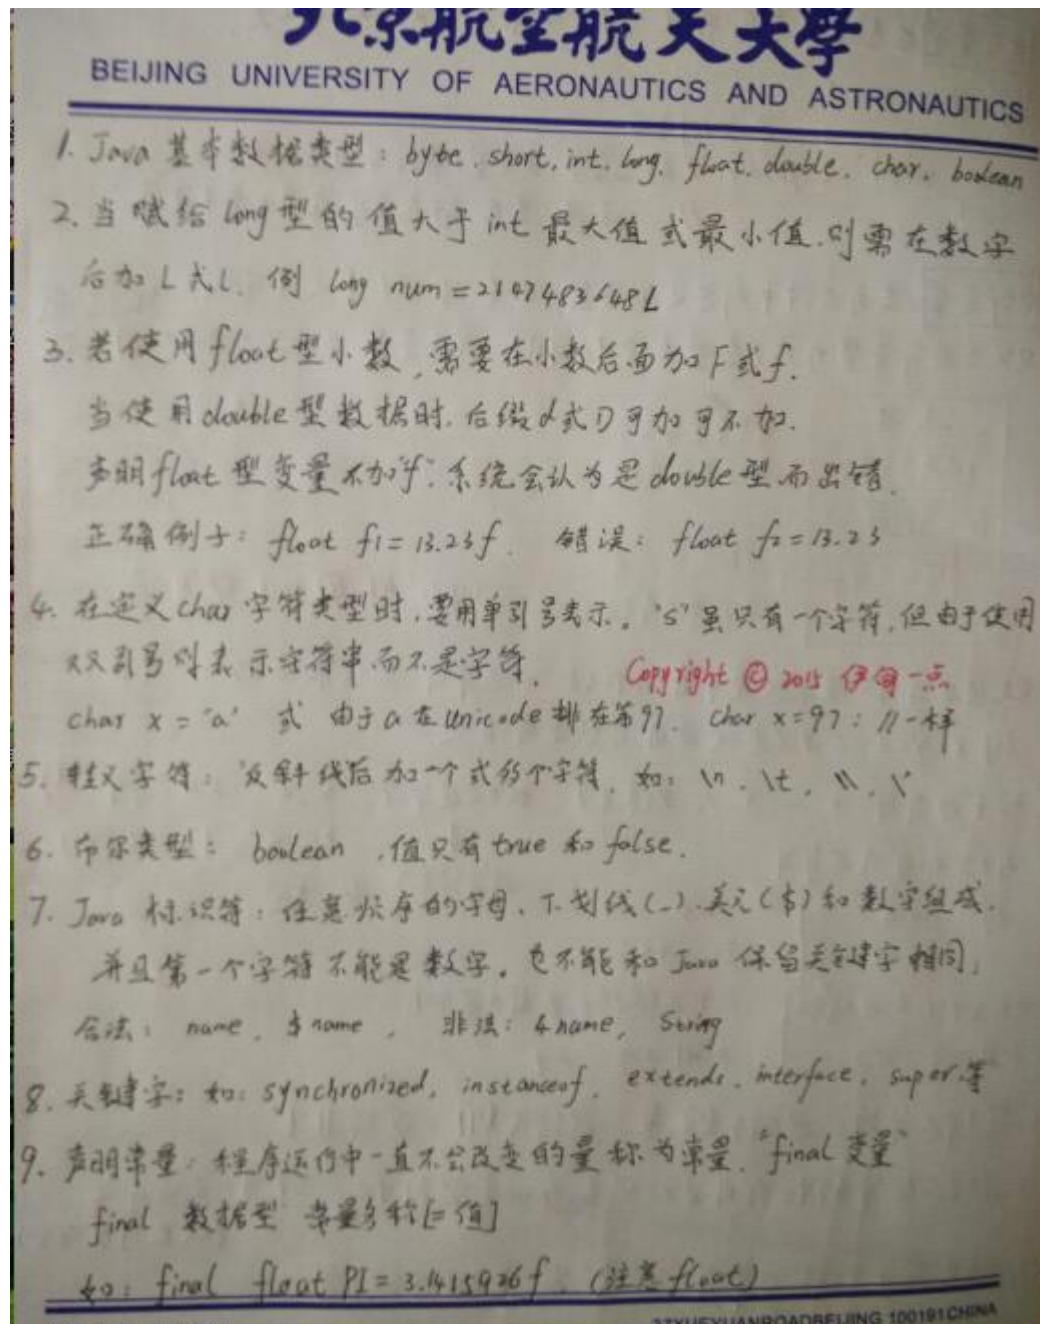 北京航空航天大學
BEIJING UNIVERSITY OF AERONAUTICS AND ASTRONAUTICS
1. Java 基本数据类型：byte、short, int, long, float, double, char, boolean
2. 当赋给 long 型的值大于 int 最大值或最小值, 则需在数字
后加 L 或 l. 例 long num = 2147483648L
3. 若使用 float 型小数, 需要在小数后面加 F 或 f.
当使用 double 型数据时, 后缀 d 或 D 可加可不加.
声明 float 型变量不加"f", 系统会认为是 double 型而出错.
正确例子：float f1 = 13.23f. 错误：float f2 = 13.23
4. 在定义 char 字符类型时, 要用单引号表示。"s"虽只有一个字符, 但由于使用
双引号则表示字符串而不是字符.
Copyright © 2015 伊甸一点
char x = 'a' 或 由于 a 在 unicode 排在第97. char x=97; //一样
5. 转义字符：反斜线后加一个或多个字符, 如：\n、\t、\\、\'
6. 布尔类型：boolean, 值只有 true 和 false.
7. Java 标识符：任意顺序的字母、下划线(_)、美元($)和数字组成.
并且第一个字符不能是数字。也不能和 Java 保留关键字相同,
合法：name, $name, 非法：4name, String
8. 关键字：如：synchronized, instanceof, extends, interface, super 等
9. 声明常量：程序运行中一直不会改变的量称为常量, "final 变量"
final 数据型 常量名称[=值]
如：final float PI = 3.1415926f. (注意 float)
37XUEYUANROADBEIJING 100191CHINA